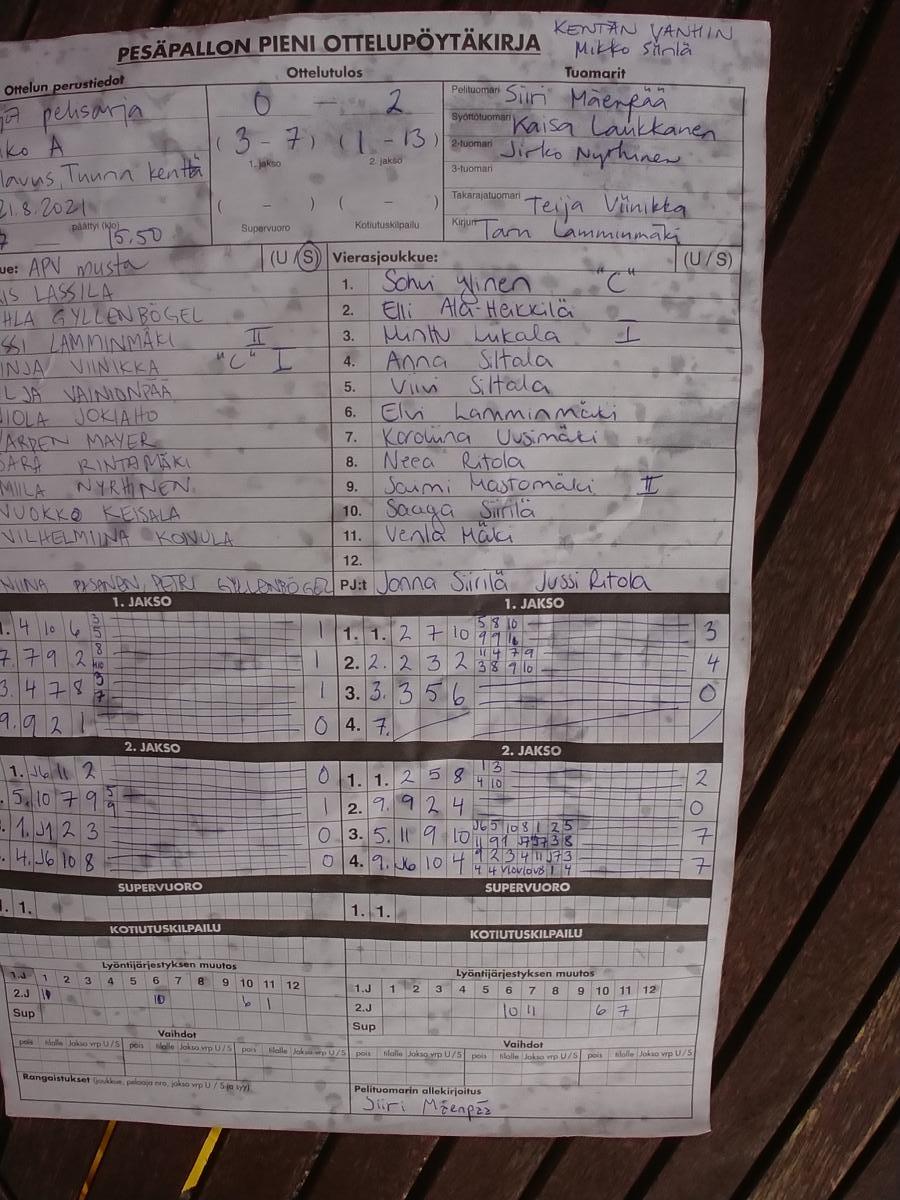 KENTÄN VANHIN
Mikko Siirilä
PESÄPALLON PIENI OTTELUPÖYTÄKIRJA
Ottelun perustiedot
Ottelutulos
Tuomarit
pelisarja
0 — 2
Pelituomari Siiri Mäenpää
ko A
(3 - 7) (1 - 13)
Syöttötuomari Kaisa Laukkanen
1. jakso 2. jakso
2-tuomari Jirko Nyrhinen
lavus, Tuurin kenttä
3-tuomari
21.8.2021
( - ) ( - )
Takarajatuomari Teija Viinikka
päättyi (klo) 15.50
Supervuoro Kotiutuskilpailu
Kirjuri Taru Lamminmäki
ue: APV musta (U / S)
Vierasjoukkue: (U / S)
IS LASSILA
1. Solvi Ylinen "C"
HLA GYLLENBÖGEL
2. Elli Ala-Heikkilä
SSI LAMMINMÄKI II
3. Minttu Lukala I
INJA VIINIKKA "C" I
4. Anna Siltala
LJA VAINIONPÄÄ
5. Viivi Siltala
IOLA JOKIAHO
6. Elvi Lamminmäki
ARDEN MAYER
7. Karoliina Uusimäki
SARA RINTAMÄKI
8. Neea Ritola
MIILA NYRHINEN
9. Saimi Mastomäki II
VUOKKO KEISALA
10. Saaga Siirilä
VILHELMIINA KOIVULA
11. Venla Mäki
12.
NIINA PASANEN, PETRI GYLLENBÖGEL
PJ:t Jonna Siirilä Jussi Ritola
1. JAKSO
1. JAKSO
1. 4 10 6 3 5 1
1. 1. 2 7 10 5 8 10 9 9 1 3
7. 7 9 2 8 1
2. 2. 2 3 2 11 4 7 9 3 8 9 10 4
3. 4 7 8 3 7 1
3. 3. 3 5 6 0
9. 9 2 1 0
4. 7.
2. JAKSO
2. JAKSO
1. J6 11 2 0
1. 1. 2 5 8 1 3 4 10 2
5. 10 7 9 5 9 1
2. 9. 9 2 4 0
1. J1 2 3 0
3. 5. 11 9 10 J6 5 10 8 1 2 5 7
4. J6 10 8 0
4. 9. J6 10 4 9 2 3 4 11 J7 3 7
SUPERVUORO
SUPERVUORO
1. 1.
1. 1.
KOTIUTUSKILPAILU
KOTIUTUSKILPAILU
Lyöntijärjestyksen muutos
Lyöntijärjestyksen muutos
1.J 1 2 3 4 5 6 7 8 9 10 11 12
1.J 1 2 3 4 5 6 7 8 9 10 11 12
2.J 10 6 1
2.J 10 11 6 7
Sup
Sup
Vaihdot
Vaihdot
pois tilalle Jakso vrp U / S pois tilalle Jakso vrp U / S pois tilalle Jakso vrp U / S
pois tilalle Jakso vrp U / S pois tilalle Jakso vrp U / S pois tilalle Jakso vrp U / S
Rangaistukset (joukkue, pelaaja nro, jakso vrp U / S ja syy)
Pelituomarin allekirjoitus
Siiri Mäenpää